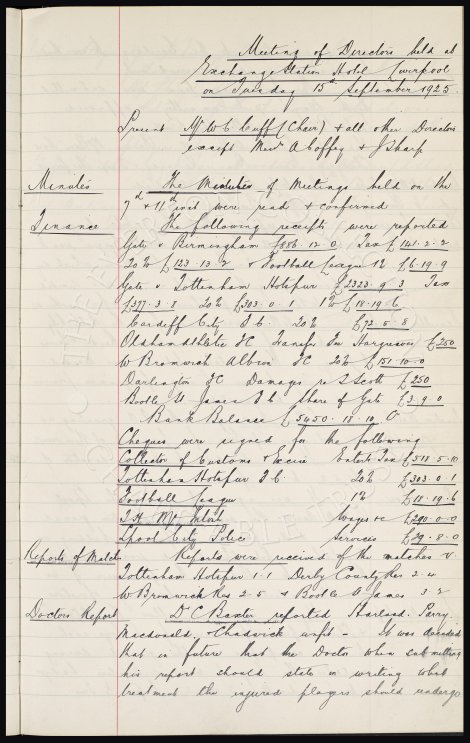 Meeting of Directors held at
Exchange Station Hotel Liverpool
on Tuesday 15th September 1925
Present Mr W C Cuff (Chair) & all other Directors
except Messrs A Coffey & J Sharp
Minutes
The Minutes of Meetings held on the
7th & 11th inst were read & confirmed
Finance
The following receipts were reported
Gate v Birmingham £886. 12. 0 Tax £141. 2. 2
20% £123. 13. 2 & Football League 1% £6. 19. 9
Gate v Tottenham Hotspur £2323. 9. 3 Tax
£377. 3. 8 20% £303. 0. 1 1% £18. 19. 6
Cardiff City F C. 20% £72. 5. 8
Oldham Athletic FC Transfer Fee Hargreaves £250
W Bromwich Albion FC 20% £151. 10. 0
Darlington FC Damages re S Scott £250
Bootle St James F C share of Gate £3. 9. 0
Bank Balance £5450. 18. 10
Cheques were signed for the following
Collector of Customs & Excise Enterts Tax £518. 5. 10
Tottenham Hotspur F C. 20% £303. 0. 1
Football League 1% £18. 19. 6
T. H. McIntosh Wages &c £290. 0. 0
Lpool City Police Services £29. 8. 0
Reports of Match
Reports were received of the matches v
Tottenham Hotspur 1.1 Derby County Res 2.4
W Bromwich Res 2.5 & Bootle St James 3.2
Doctors Report
Dr C Baxter reported Harland. Parry.
Macdonald, Chadwick unfit - It was decided
that in future that the Doctor when submitting
his report should state in writing what
treatment the injured players should undergo